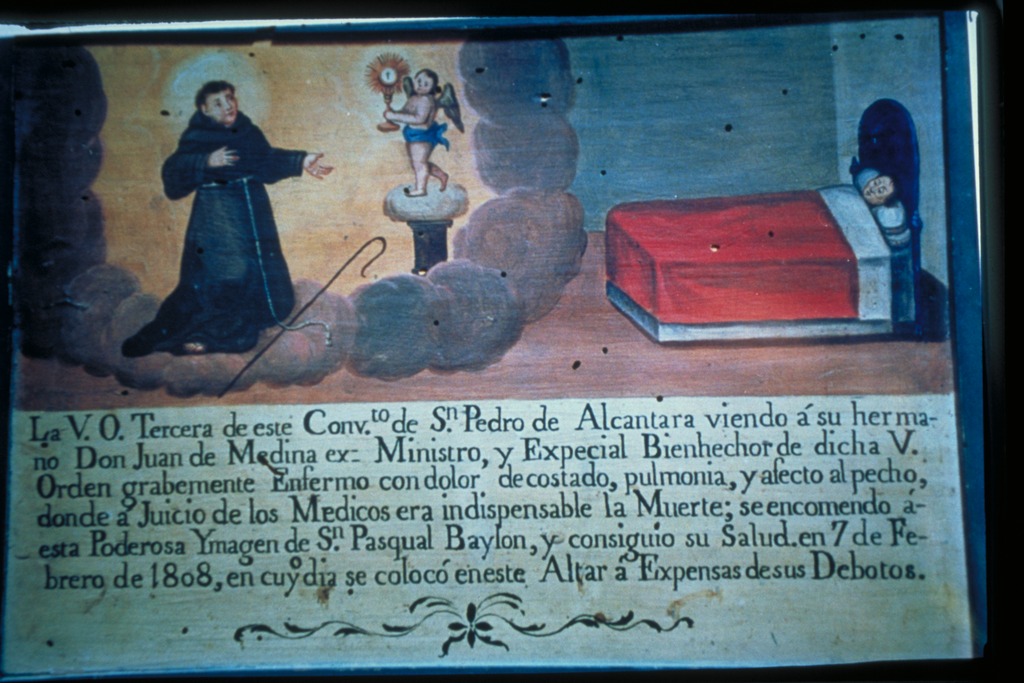 La V. O. Tercera de este Conv.to de Sn. Pedro de Alcantara viendo á su herma-
no Don Juan de Medina ex= Ministro, y Expecial Bienhechor de dicha V.
Orden grabemente Enfermo con dolor de costado, pulmonia, y afecto al pecho,
donde á Juicio de los Medicos era indispensable la Muerte; se encomendo á-
esta Poderosa Ymagen de Sn. Pasqual Baylon, y consiguio su Salud. en 7 de Fe-
brero de 1808, en cuyo dia se colocó en este Altar á Expensas de sus Debotos.